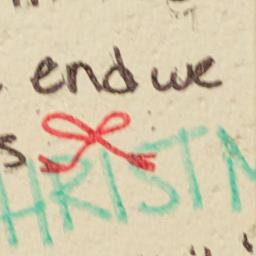 end we
s
HRISTM